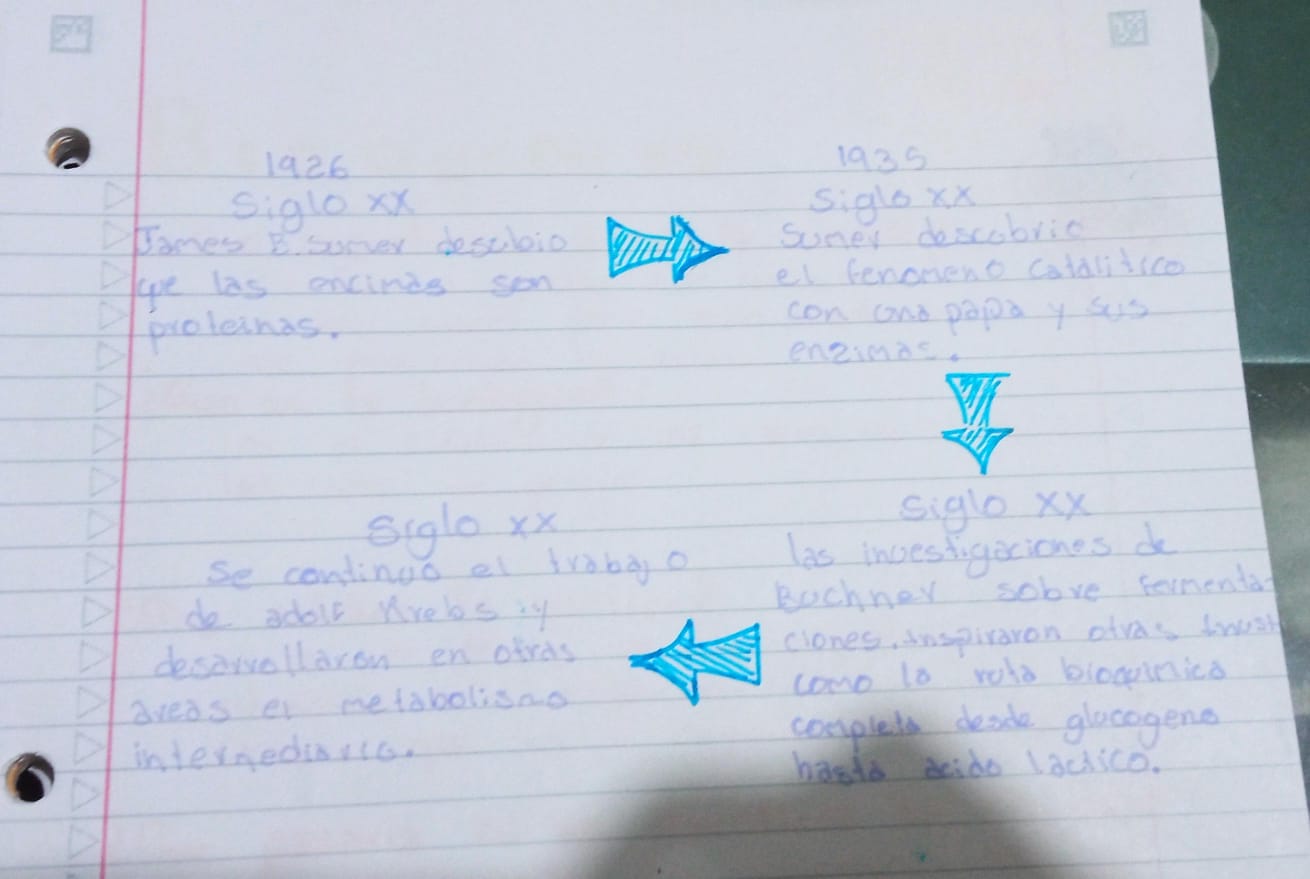 1926
Siglo xx
James B. Sumer descubio
que las encimas son
proteinas.
1935
Siglo xx
Sumer descubrio
el fenomeno catalitico
con una papa y sus
enzimas.
Siglo xx
las investigaciones de
Buchner sobre fermenta-
ciones. Inspiraron otras
como la ruta bioquimica
completa desde glucogeno
hasta acido lactico.
Siglo xx
Se continuo el trabajo
de adolf Krebs y
desarrollaron en otras
areas el metabolismo
intermediario.